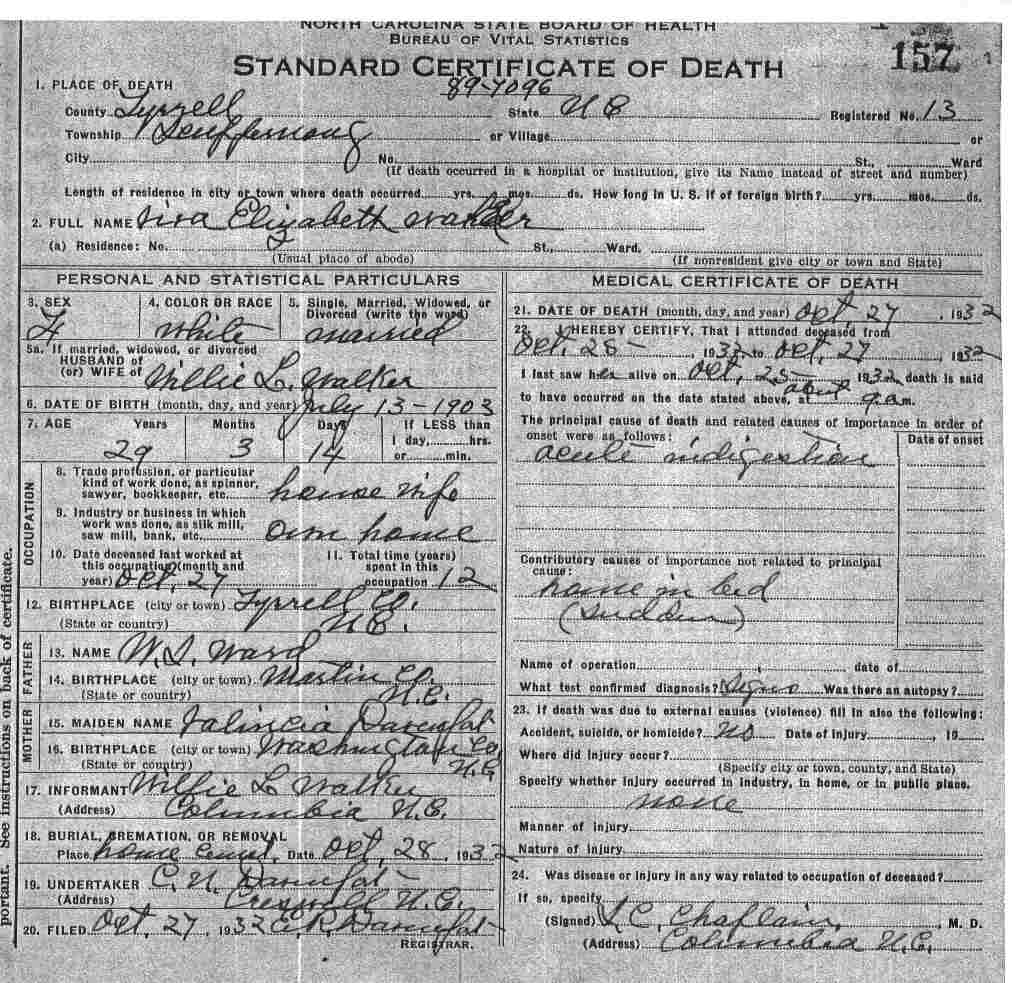 NORTH CAROLINA STATE BOARD OF HEALTH
BUREAU OF VITAL STATISTICS
157
1
STANDARD CERTIFICATE OF DEATH
89-7096
1. PLACE OF DEATH
County Tyrrell State N C Registered No. 13
Township Scuppernong or Village or
City No. St., Ward
(If death occurred in a hospital or institution, give its Name instead of street and number)
Length of residence in city or town where death occurred yrs. mos. ds. How long in U. S. if of foreign birth? yrs. mos. ds.
2. FULL NAME Elizabeth Walker
(a) Residence: No. St., Ward,
(Usual place of abode) (If nonresident give city or town and State)
PERSONAL AND STATISTICAL PARTICULARS
3. SEX
F
4. COLOR OR RACE
White
5. Single, Married, Widowed, or
Divorced (write the word)
married
5a. If married, widowed, or divorced
HUSBAND of
(or) WIFE of Willie L. Walker
6. DATE OF BIRTH (month, day, and year) July 13-1903
7. AGE Years Months Days If LESS than
1 day, hrs.
29 3 14 or min.
OCCUPATION
8. Trade profession, or particular
kind of work done, as spinner,
sawyer, bookkeeper, etc. house wife
9. Industry or business in which
work was done, as silk mill,
saw mill, bank, etc. own home
10. Date deceased last worked at
this occupation (month and
year) Oct, 27
11. Total time (years)
spent in this
occupation 12
12. BIRTHPLACE (city or town) Tyrrell Co.
(State or country) N.C.
FATHER
13. NAME W. Ward
14. BIRTHPLACE (city or town) Martin Co
(State or country) N.C.
MOTHER
15. MAIDEN NAME Davenport
16. BIRTHPLACE (city or town) Washington Co
(State or country) N.C
17. INFORMANT Willie L Walker
(Address) Columbia N.C.
18. BURIAL, CREMATION, OR REMOVAL
Place home Date Oct, 28, 1932
19. UNDERTAKER Davenport
(Address) Creswell N.C.
20. FILED Oct, 27, 1932 Davenport
REGISTRAR.
MEDICAL CERTIFICATE OF DEATH
21. DATE OF DEATH (month, day, and year) Oct 27, 1932
22. I HEREBY CERTIFY, That I attended deceased from
Oct. 25-, 1932 to Oct, 27, 1932
I last saw her alive on Oct, 25- 1932 death is said
to have occurred on the date stated above, at about 9 a.m.
The principal cause of death and related causes of importance in order of
onset were as follows: Date of onset
acute indigestion
Contributory causes of importance not related to principal
cause:
home in bed
(sudden)
Name of operation date of
What test confirmed diagnosis? Signs Was there an autopsy?
23. If death was due to external causes (violence) fill in also the following:
Accident, suicide, or homicide? No Date of injury , 19
Where did injury occur?
(Specify city or town, county, and State)
Specify whether injury occurred in industry, in home, or in public place.
none
Manner of injury
Nature of injury
24. Was disease or injury in any way related to occupation of deceased?
If so, specify
(Signed) , M. D.
(Address) Columbia N.C.
portant. See instructions on back of certificate.